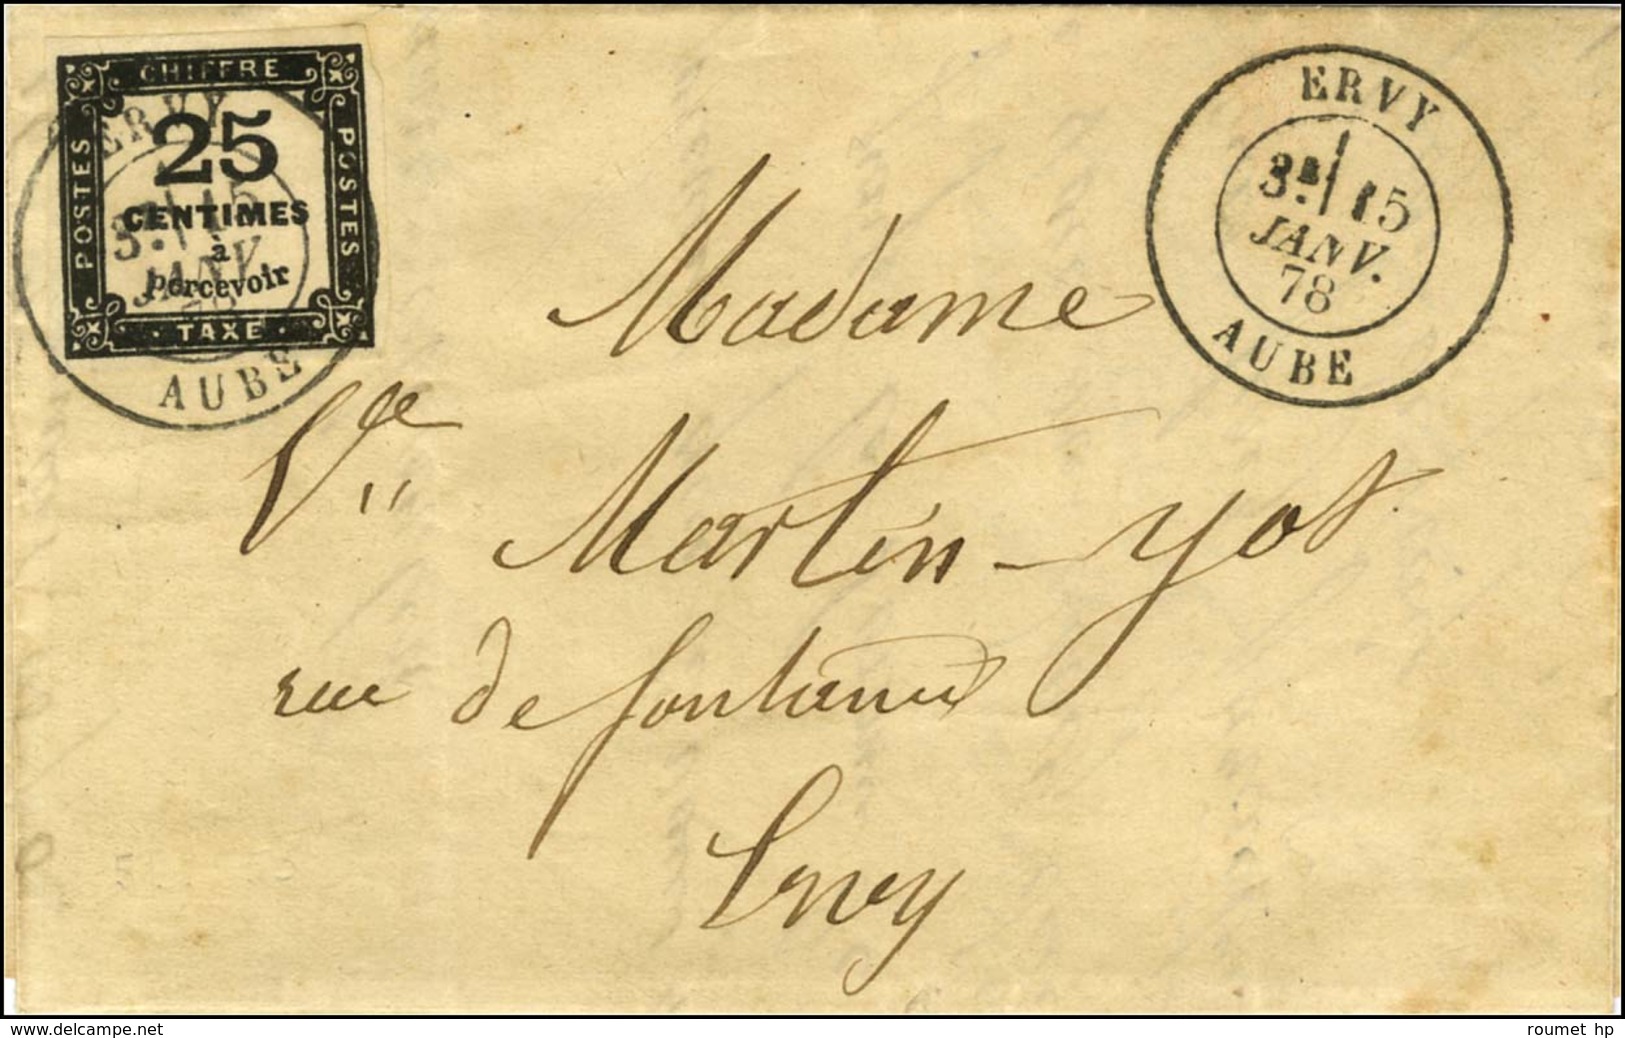 CHIFFRE
POSTES
25
CENTIMES
à
percevoir
POSTES
TAXE
ERVY
3E 15
JANV.
78
AUBE
ERVY
3E 15
JANV.
78
AUBE
Madame
Vve Martin-yot
rue de fontaine
Ervy
www.delcampe.net
roumet_hp